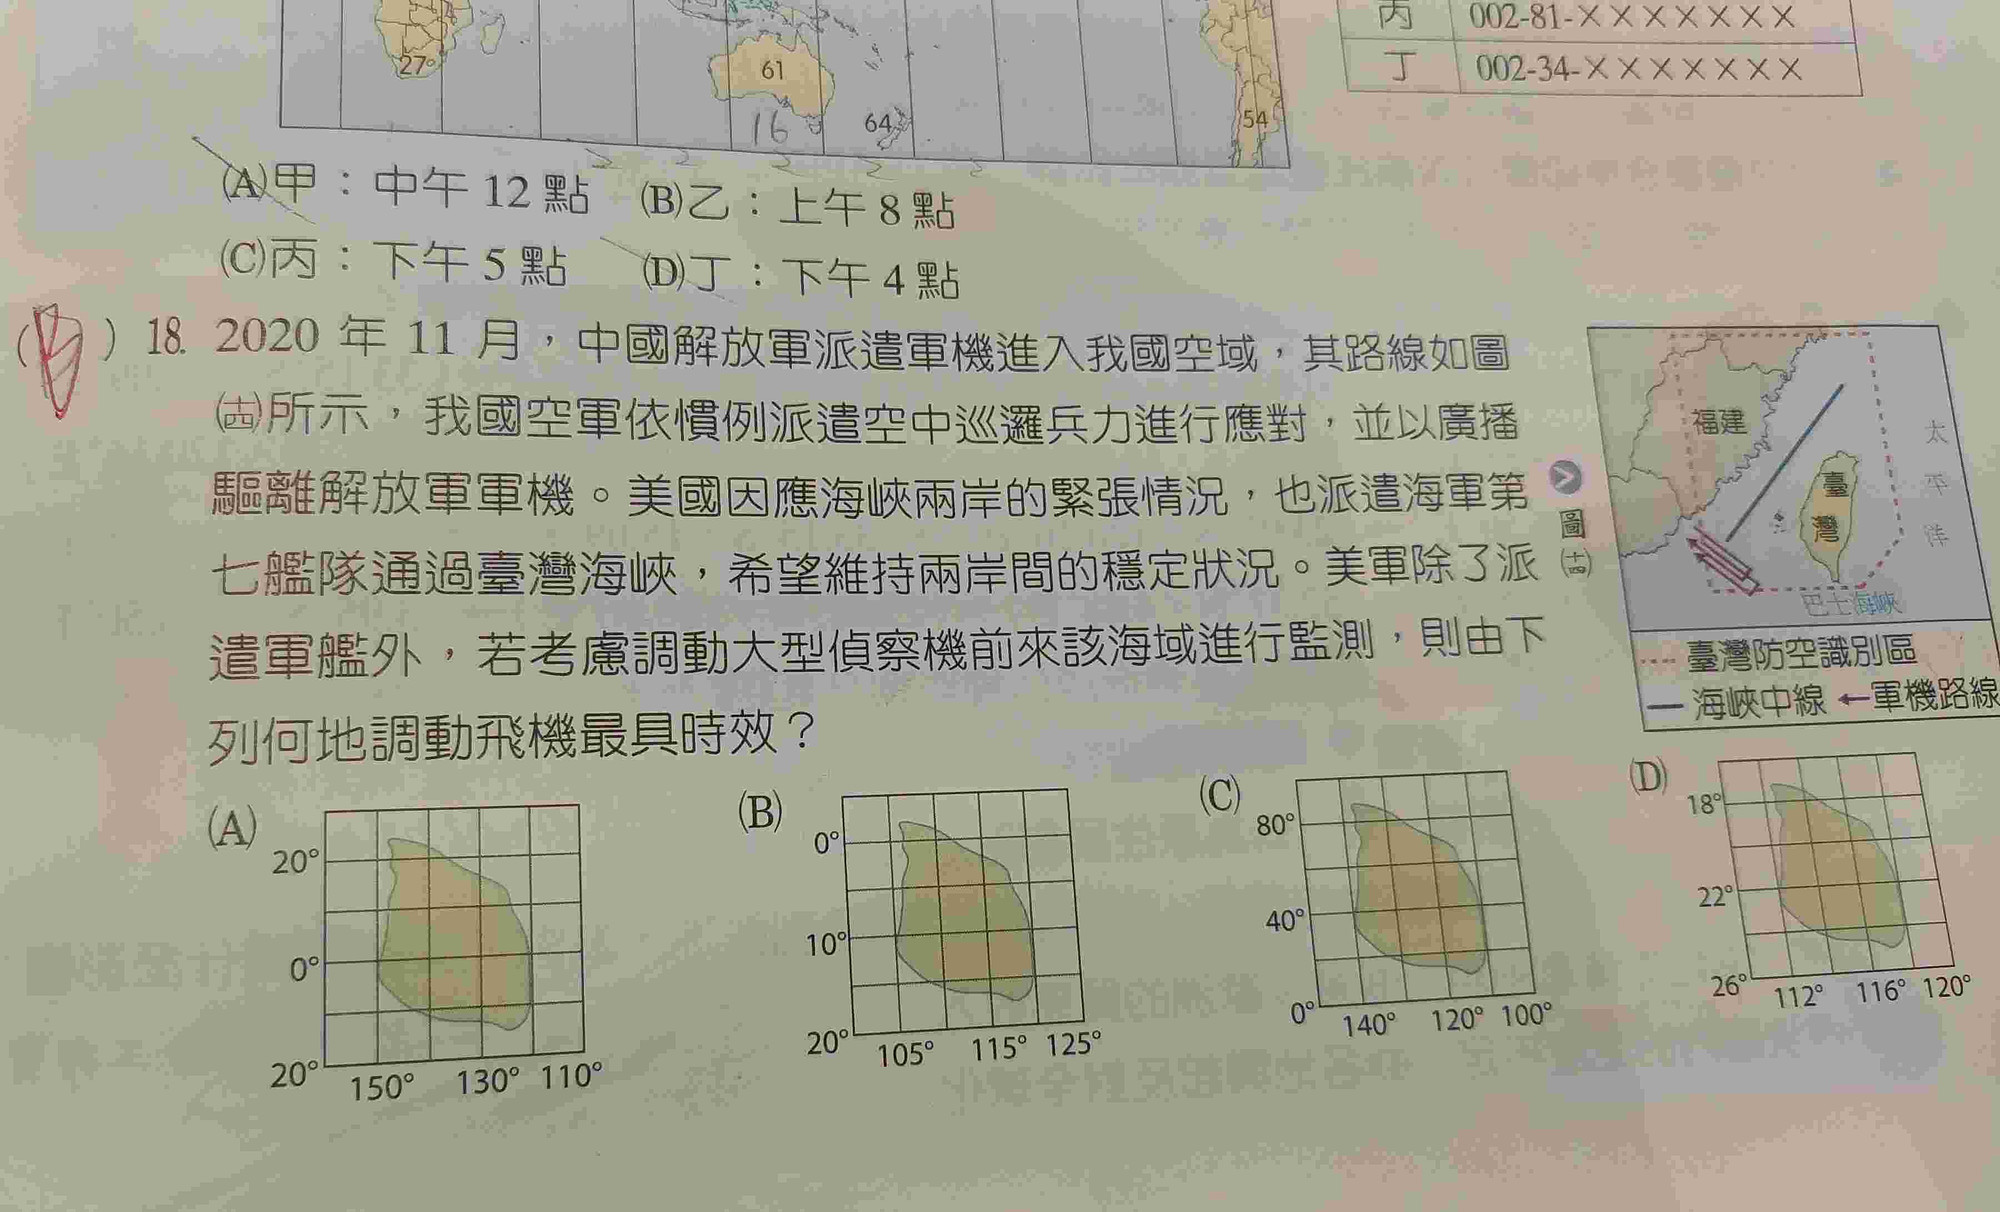 丙 002-81-×××××××
丁 002-34-×××××××
27°
61
16
64
54
(A)甲：中午 12 點 (B)乙：上午 8 點
(C)丙：下午 5 點 (D)丁：下午 4 點
( ) 18. 2020 年 11 月，中國解放軍派遣軍機進入我國空域，其路線如圖
㈩所示，我國空軍依慣例派遣空中巡邏兵力進行應對，並以廣播
驅離解放軍軍機。美國因應海峽兩岸的緊張情況，也派遣海軍第
七艦隊通過臺灣海峽，希望維持兩岸間的穩定狀況。美軍除了派
遣軍艦外，若考慮調動大型偵察機前來該海域進行監測，則由下
列何地調動飛機最具時效？
圖
福建
臺灣
太平洋
巴士海峽
臺灣防空識別區
海峽中線 ←軍機路線
(A)
20°
0°
20°
150° 130° 110°
(B)
0°
10°
20°
105° 115° 125°
(C)
80°
40°
0°
140° 120° 100°
(D)
18°
22°
26°
112° 116° 120°